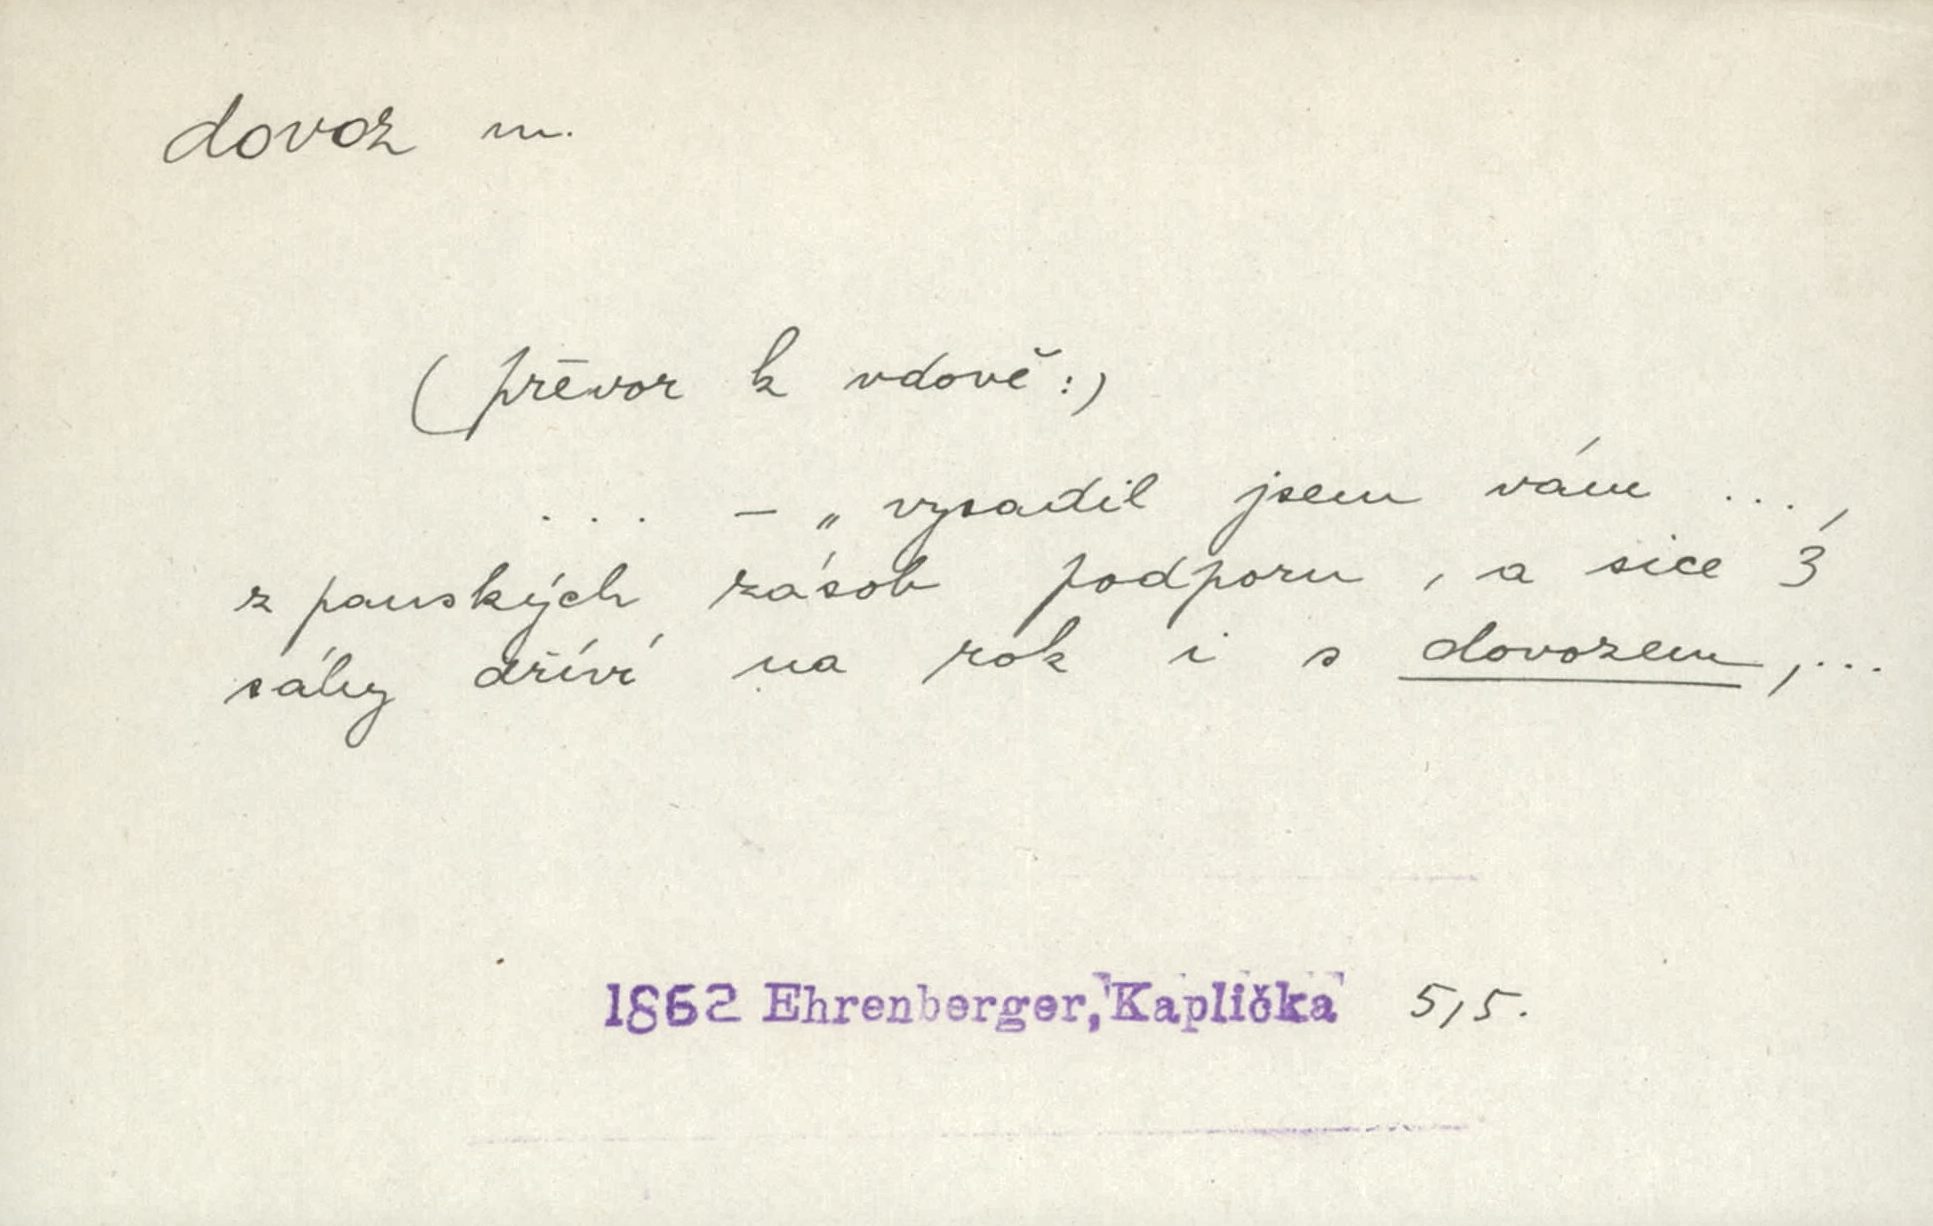 dovoz m.
(prēvor k vdově:)
... – „vysadil jsem vám ...,
z panských zásob podporu, a sice 3
sáhy dříví na rok i s dovozem,...
1862 Ehrenberger, Kaplička 5,5.